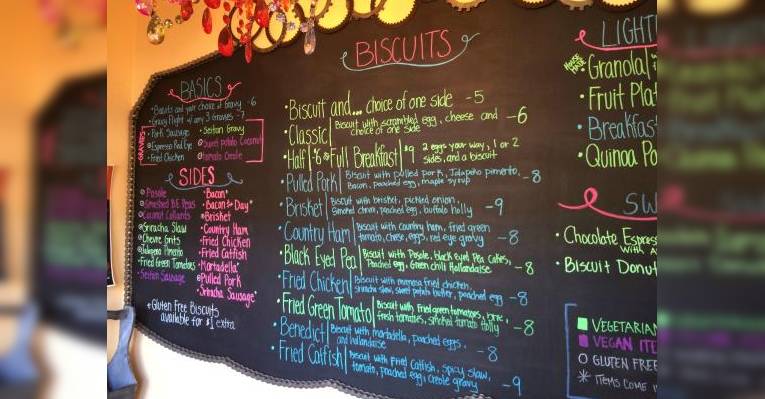 BASICS
• Biscuits and your choice of Gravy - 6
• Gravy Flight w/ any 3 Gravies - 7
GRAVIES
• Pork Sausage
• Espresso Red Eye
• Fried Chicken
• Seitan Gravy
• Sweet potato Coconut
• Tomato Creole
SIDES
Posole
Smashed B.E Peas
Coconut Collards
Sriracha Slaw
Chevre Grits
Jalapeno Pimento
Fried Green Tomatoes
Seitan Sausage
Bacon*
Bacon of the Day*
Brisket
Country Ham
Fried Chicken
Fried Catfish
Mortadella*
Pulled Pork
Sriracha Sausage*
*Gluten Free Biscuits
available for $1 extra
BISCUITS
• Biscuit and... choice of one side - 5
• Classic | Biscuit with scrambled egg, cheese and
choice of one side - 6
• Half $6 or Full Breakfast $9 | 2 eggs your way, 1 or 2
sides, and a biscuit
• Pulled Pork | Biscuit with pulled pork, Jalapeño pimento,
Bacon, poached egg, maple syrup - 8
• Brisket | Biscuit with brisket, pickled onion,
smoked chevre, poached egg, - 9
• Country Ham | Biscuit with country ham, fried green
tomato, cheese, eggs, red eye gravy - 8
• Black Eyed Pea | Biscuit with Posole, Black Eyed Pea Cakes,
Poached egg, Green chili Hollandaise - 8
• Fried Chicken | Biscuit with fried chicken,
sriracha slaw, sweet potato butter, poached egg - 8
• Fried Green Tomato | Biscuit with Fried Green tomatoes,
fresh tomatoes, smoked tomato - 8
• Benedict | Biscuit with mortadella, poached eggs,
and hollandaise - 8
• Fried Catfish | Biscuit with Fried Catfish, spicy slaw,
tomato, poached egg, creole gravy - 9
LIGHT
HOUSE MADE
• Granola
• Fruit Plat
• Breakfas
• Quinoa Po
SW
• Chocolate Espress
WITH A
• Biscuit Donut
VEGETARIAN
VEGAN ITE
GLUTEN FREE
ITEMS COME